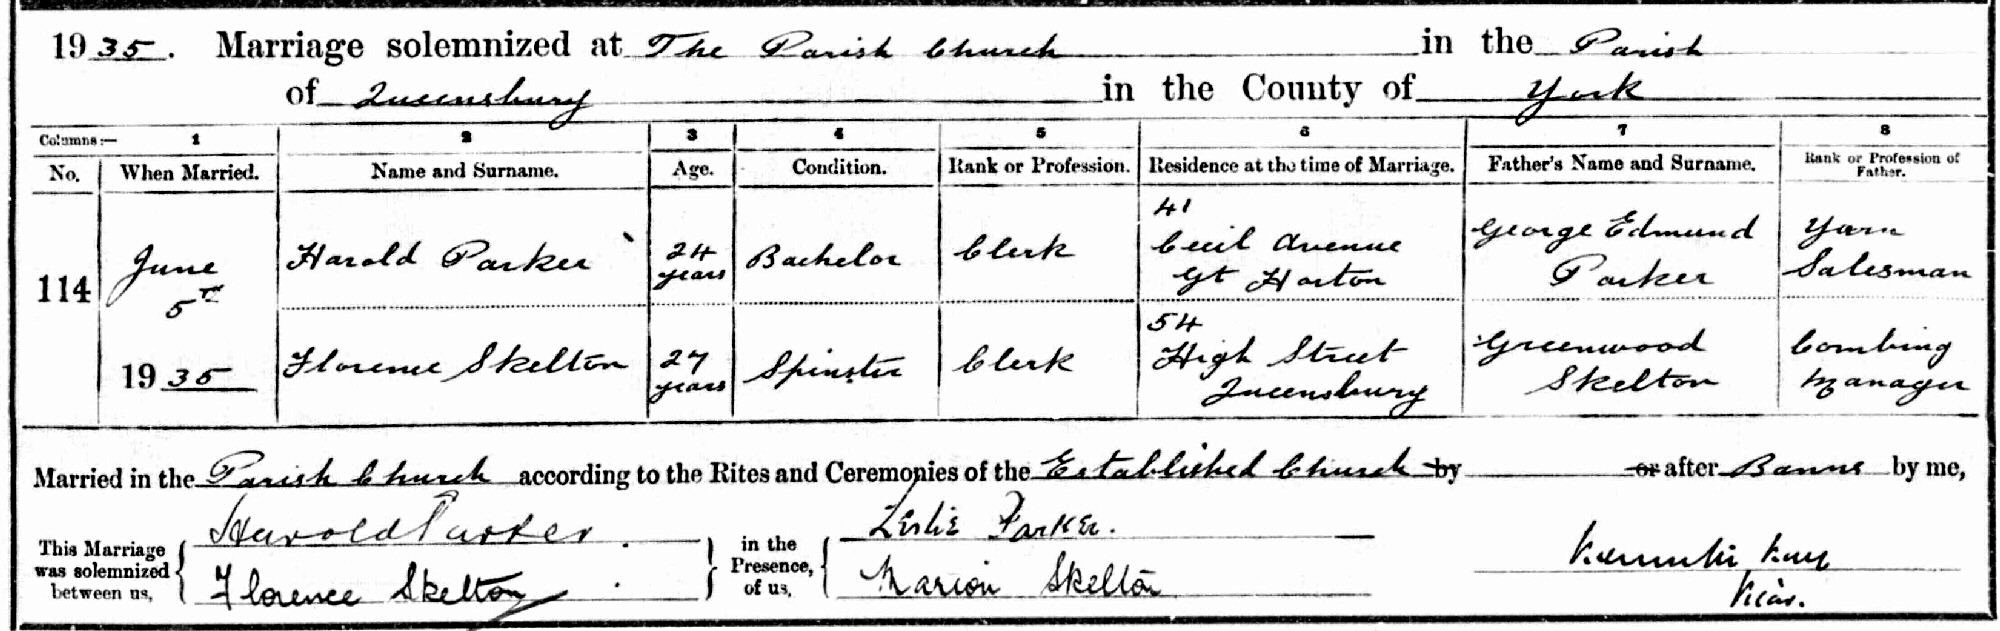 1935. Marriage solemnized at The Parish Church in the Parish
of Queensbury in the County of York
Columns:— 1 2 3 4 5 6 7 8
No. When Married. Name and Surname. Age. Condition. Rank or Profession. Residence at the time of Marriage. Father's Name and Surname. Rank or Profession of Father.
114
June
5TH
1935
Harold Parker
24
years
Bachelor
Clerk
41
Cecil Avenue
Gt Horton
George Edmund
Parker
Yarn
Salesman
Florence Skelton
27
years
Spinster
Clerk
54
High Street
Queensbury
Greenwood
Skelton
Combing
Manager
Married in the Parish Church according to the Rites and Ceremonies of the Established Church by or after Banns by me,
This Marriage
was solemnized
between us,
Harold Parker.
Florence Skelton.
in the
Presence,
of us,
Leslie Parker.
Marion Skelton
Vicar.